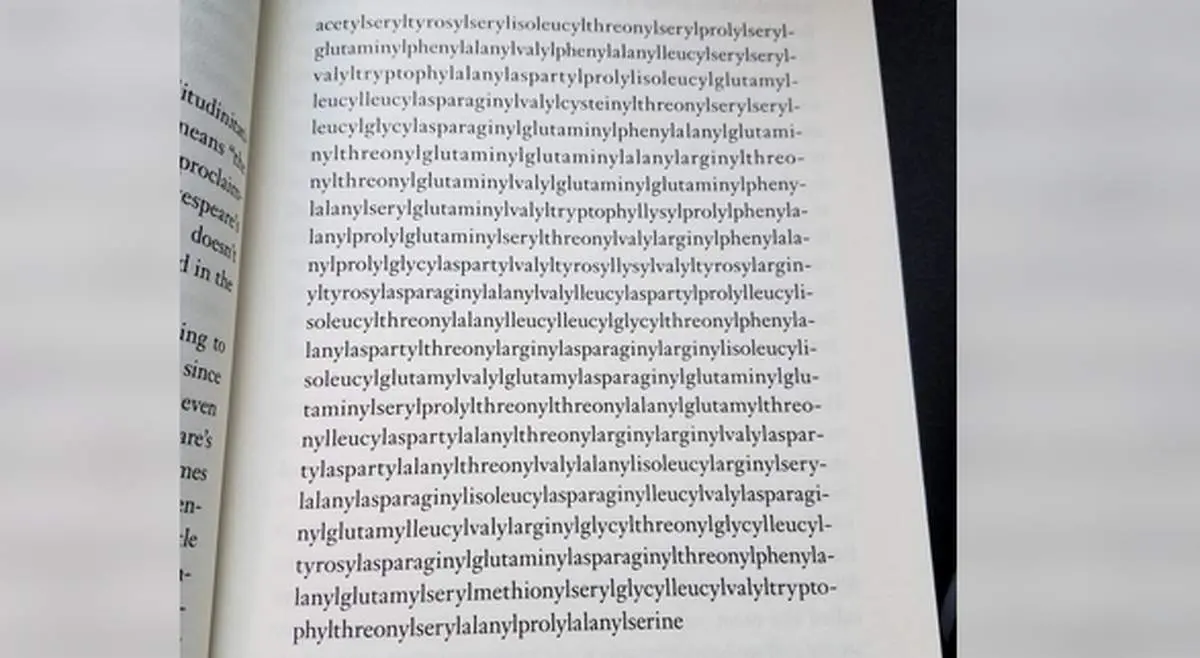 means “the
proclaim-
espeare's
doesn't
d in the
ing to
since
even
are's
mes
en-
acetylseryltyrosylserylisoleucylthreonylserylprolylseryl-
glutaminylphenylalanylvalylphenylalanylleucylserylseryl-
valyltryptophylalanylaspartylprolylisoleucylglutamyl-
leucylleucylasparaginylvalylcysteinylthreonylserylseryl-
leucylglycylasparaginylglutaminylphenylalanylglutami-
nylthreonylglutaminylglutaminylalanylarginylthreo-
nylthreonylglutaminylvalylglutaminylglutaminylpheny-
lalanylserylglutaminylvalyltryptophyllysylprolylphenyla-
lanylprolylglutaminylserylthreonylvalylarginylphenylala-
nylprolylglycylaspartylvalyltyrosyllysylvalyltyrosylargin-
yltyrosylasparaginylalanylvalylleucylaspartylprolylleucyli-
soleucylthreonylalanylleucylleucylglycylthreonylphenyla-
lanylaspartylthreonylarginylasparaginylarginylisoleucyli-
soleucylglutamylvalylglutamylasparaginylglutaminylglu-
taminylserylprolylthreonylthreonylalanylglutamylthreo-
nylleucylaspartylalanylthreonylarginylarginylvalylaspar-
tylaspartylalanylthreonylvalylalanylisoleucylarginylsery-
lalanylasparaginylisoleucylasparaginylleucylvalylasparagi-
nylglutamylleucylvalylarginylglycylthreonylglycylleucyl-
tyrosylasparaginylglutaminylasparaginylthreonylphenyla-
lanylglutamylserylmethionylserylglycylleucylvalyltrypto-
phylthreonylserylalanylprolylalanylserine